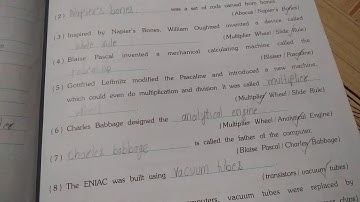 (2) Napier's bones was a set of rods carved from bones.
(Abacus / Napier's Bones)
(3) Inspired by Napier's Bones, William Oughtred invented a device called
slide rule
(Multiplier Wheel / Slide Rule)
(4) Blaise Pascal invented a mechanical calculating machine called the
(Blaise / Pascaline)
(5) Gottfried Leibnitz modified the Pascaline and introduced a new machine,
which could even do multiplication and division. It was called multiplier
wheel
(Multiplier Wheel / Slide Rule)
(6) Charles Babbage designed the analytical engine
(Multiplier Wheel / Analytical Engine)
(7) Charles babbage is called the father of the computer.
(Blaise Pascal / Charles Babbage)
(8) The ENIAC was built using vacuum tubes
(transistors / vacuum tubes)
computers, vacuum tubes were replaced by